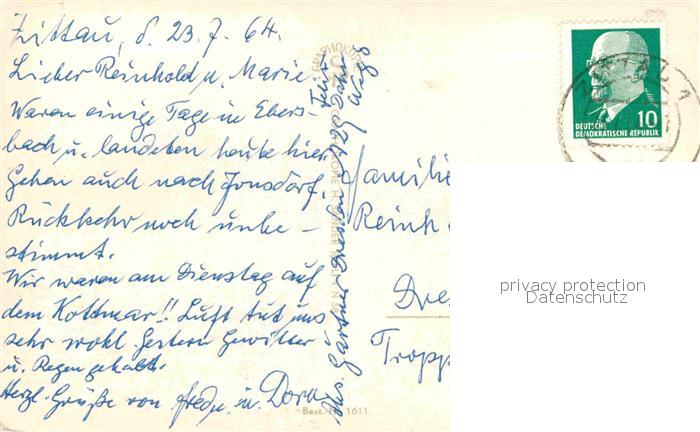 Zittau, d. 23.7.64.
Lieber Reinhold u. Marie
Waren einige Tage in Ebers-
bach u. landeten heute hier
Gehen auch nach Jonsdorf.
Rückkehr noch unbe-
stimmt.
Wir waren am Dienstag auf
dem Kottmar!! Luft tut uns
sehr wohl. Gestern Gewitter
u. Regen gehabt.
Herzl. Grüße von u. Dora
Abs. Gärtner Dresden A 29
Weg 8
Familie
Reinh
Dre
Tropp
10
DEUTSCHE
DEMOKRATISCHE REPUBLIK
ZITTAU 1
privacy protection
Datenschutz
Best.-Nr. 1611